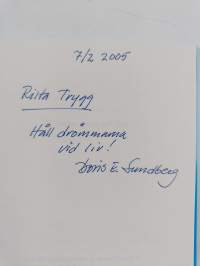 7/2 2005
Riita Trygg
Håll drömmarna
vid liv!
Doris E. Sundberg